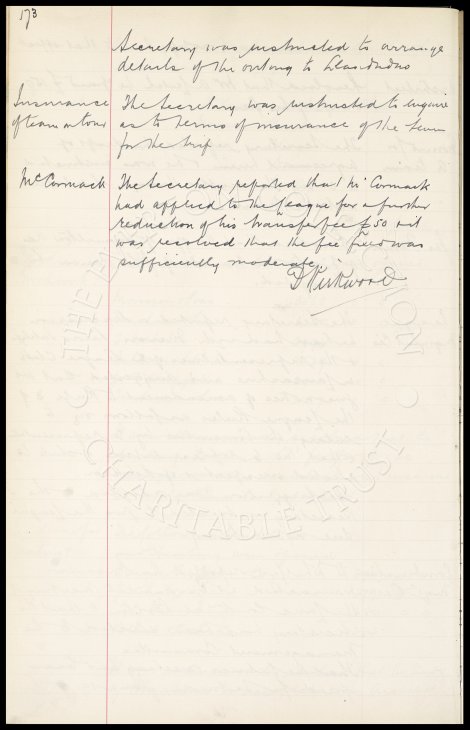 173
Secretary was instructed to arrange
details of the outing to Llandudno
Insurance The Secretary was instructed to enquire
of team on tour as to terms of insurance of the team
for the trip
McCormack The Secretary reported that McCormack
had applied to the League for a further
reduction of his transfer fee £50 & it
was resolved that the fee fixed was
sufficiently moderate.
D Kirkwood
THE
ON
CHARITABLE TRUST